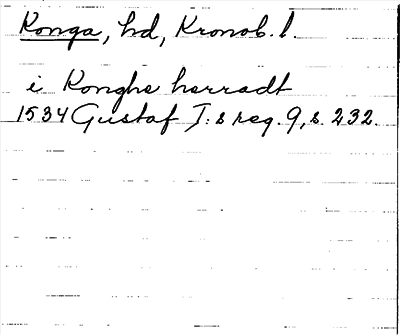 Konga, hd, Kronob. l.
i Konghe herradt
1534 Gustaf I:s reg. 9, s. 232.